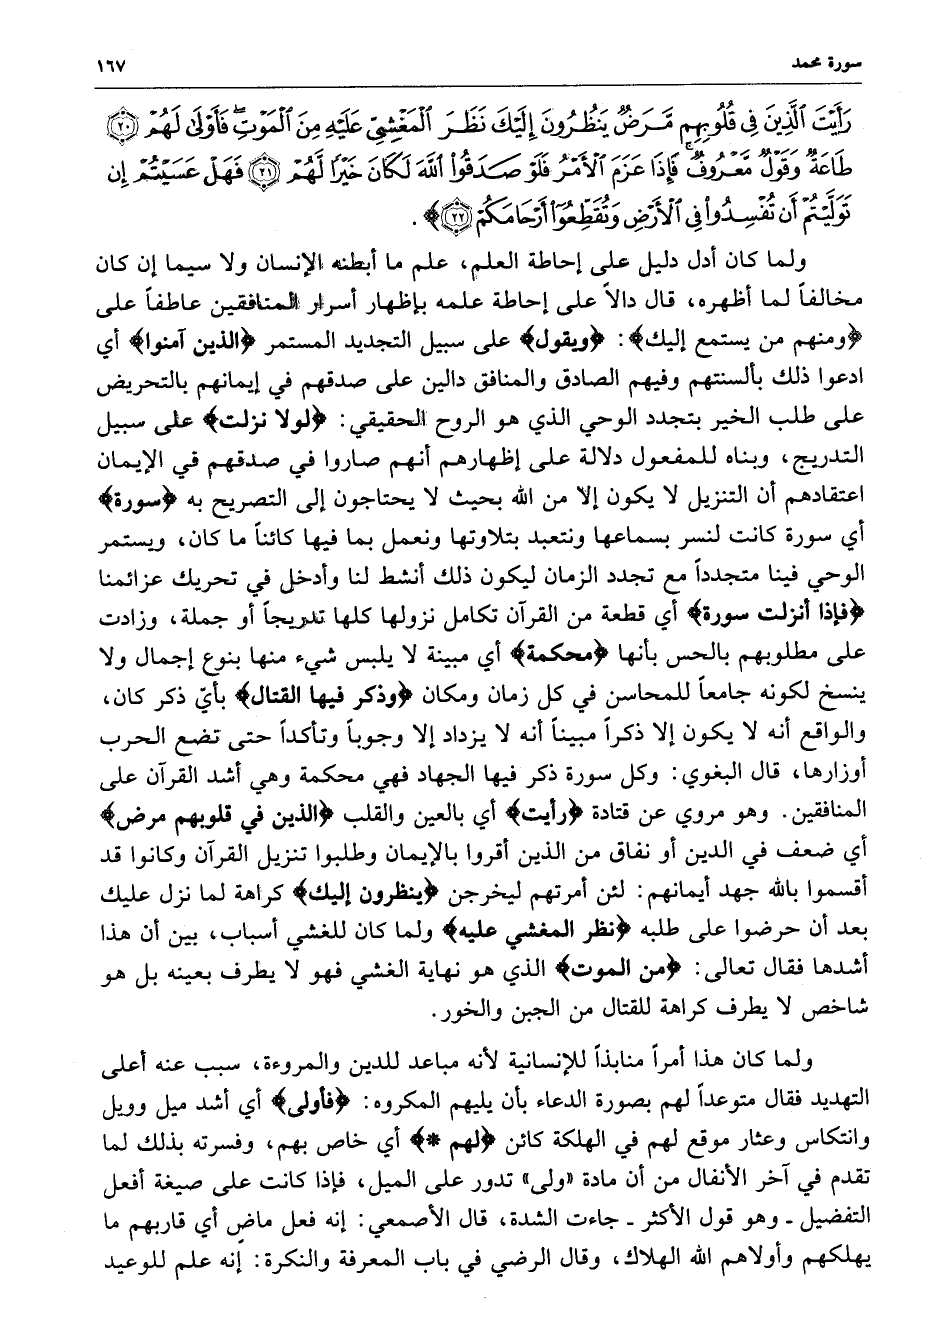 سورة محمد ١٦٧
رَأَيْتَ الَّذِينَ فِي قُلُوبِهِم مَّرَضٌ يَنظُرُونَ إِلَيْكَ نَظَرَ الْمَغْشِيِّ عَلَيْهِ مِنَ الْمَوْتِ فَأَوْلَى لَهُمْ ﴿٢٠﴾
طَاعَةٌ وَقَوْلٌ مَّعْرُوفٌ فَإِذَا عَزَمَ الْأَمْرُ فَلَوْ صَدَقُوا اللَّهَ لَكَانَ خَيْرًا لَّهُمْ ﴿٢١﴾ فَهَلْ عَسَيْتُمْ إِن
تَوَلَّيْتُمْ أَن تُفْسِدُوا فِي الْأَرْضِ وَتُقَطِّعُوا أَرْحَامَكُمْ ﴿٢٢﴾﴾ .
ولما كان أدل دليل على إحاطة العلم، علم ما أبطنه الإنسان ولا سيما إن كان
مخالفاً لما أظهره، قال دالاً على إحاطة علمه بإظهار أسرار المنافقين عاطفاً على
﴿ومنهم من يستمع إليك﴾: ﴿ويقول﴾ على سبيل التجديد المستمر ﴿الذين آمنوا﴾ أي
ادعوا ذلك بألسنتهم وفيهم الصادق والمنافق دالين على صدقهم في إيمانهم بالتحريض
على طلب الخير بتجدد الوحي الذي هو الروح الحقيقي: ﴿لولا نزلت﴾ على سبيل
التدريج، وبناه للمفعول دلالة على إظهارهم أنهم صاروا في صدقهم في الإيمان
اعتقادهم أن التنزيل لا يكون إلا من الله بحيث لا يحتاجون إلى التصريح به ﴿سورة﴾
أي سورة كانت لنسر بسماعها ونتعبد بتلاوتها ونعمل بما فيها كائناً ما كان، ويستمر
الوحي فينا متجدداً مع تجدد الزمان ليكون ذلك أنشط لنا وأدخل في تحريك عزائمنا
﴿فإذا أنزلت سورة﴾ أي قطعة من القرآن تكامل نزولها كلها تدريجاً أو جملة، وزادت
على مطلوبهم بالحس بأنها ﴿محكمة﴾ أي مبينة لا يلبس شيء منها بنوع إجمال ولا
ينسخ لكونه جامعاً للمحاسن في كل زمان ومكان ﴿وذكر فيها القتال﴾ بأيّ ذكر كان،
والواقع أنه لا يكون إلا ذكراً مبيناً أنه لا يزداد إلا وجوباً وتأكداً حتى تضع الحرب
أوزارها، قال البغوي: وكل سورة ذكر فيها الجهاد فهي محكمة وهي أشد القرآن على
المنافقين. وهو مروي عن قتادة ﴿رأيت﴾ أي بالعين والقلب ﴿الذين في قلوبهم مرض﴾
أي ضعف في الدين أو نفاق من الذين أقروا بالإيمان وطلبوا تنزيل القرآن وكانوا قد
أقسموا بالله جهد أيمانهم: لئن أمرتهم ليخرجن ﴿ينظرون إليك﴾ كراهة لما نزل عليك
بعد أن حرضوا على طلبه ﴿نظر المغشي عليه﴾ ولما كان للغشي أسباب، بين أن هذا
أشدها فقال تعالى: ﴿من الموت﴾ الذي هو نهاية الغشي فهو لا يطرف بعينه بل هو
شاخص لا يطرف كراهة للقتال من الجبن والخور.
ولما كان هذا أمراً منابذاً للإنسانية لأنه مباعد للدين والمروءة، سبب عنه أعلى
التهديد فقال متوعداً لهم بصورة الدعاء بأن يليهم المكروه: ﴿فأولى﴾ أي أشد ميل وويل
وانتكاس وعثار موقع لهم في الهلكة كائن ﴿لهم *﴾ أي خاص بهم، وفسرته بذلك لما
تقدم في آخر الأنفال من أن مادة «ولى» تدور على الميل، فإذا كانت على صيغة أفعل
التفضيل ـ وهو قول الأكثر ـ جاءت الشدة، قال الأصمعي: إنه فعل ماضٍ أي قاربهم ما
يهلكهم وأولاهم الله الهلاك، وقال الرضي في باب المعرفة والنكرة: إنه علم للوعيد